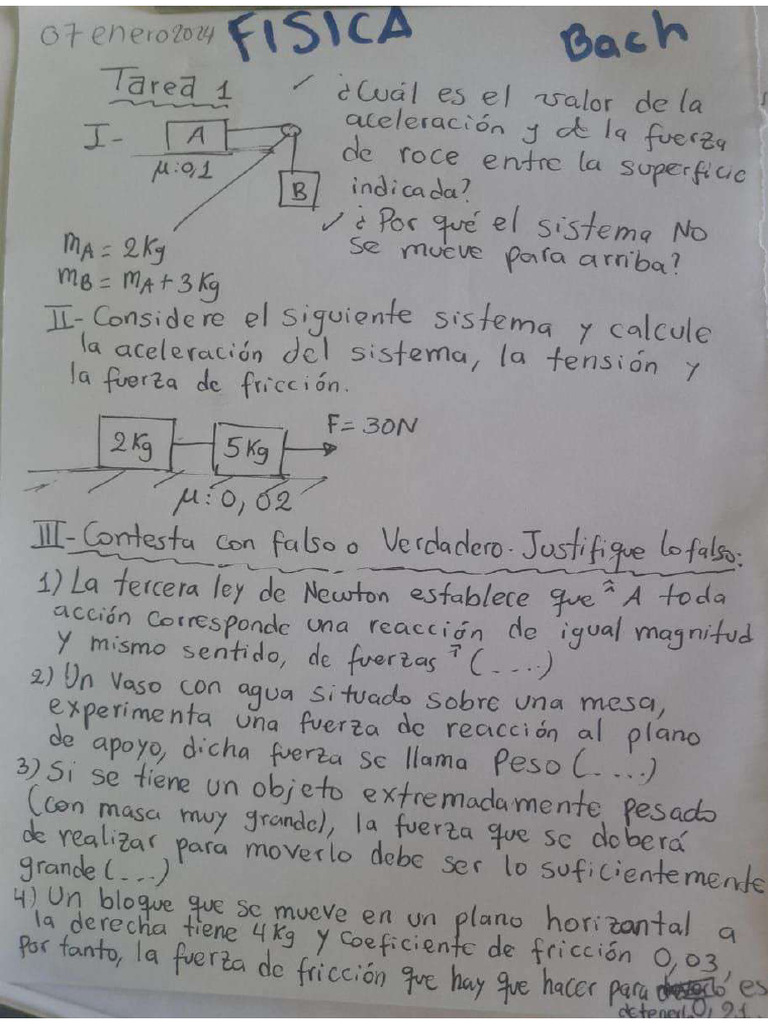 07 enero 2024 FISICA Bach
Tarea 1
I-
A
μ:0,1
B
mA = 2Kg
mB = mA + 3Kg
✓ ¿Cuál es el valor de la
aceleración y de la fuerza
de roce entre la superficie
indicada?
✓ ¿Por qué el sistema NO
se mueve para arriba?
II- Considere el siguiente sistema y calcule
la aceleración del sistema, la tensión y
la fuerza de fricción.
2Kg 5Kg F= 30N
μ: 0,02
III- Contesta con falso o Verdadero. Justifique lo falso:
1) La tercera ley de Newton establece que "A toda
acción corresponde una reacción de igual magnitud
y mismo sentido, de fuerzas" (....)
2) Un vaso con agua situado sobre una mesa,
experimenta una fuerza de reacción al plano
de apoyo, dicha fuerza se llama Peso (....)
3) Si se tiene un objeto extremadamente pesado
(con masa muy grande), la fuerza que se deberá
de realizar para moverlo debe ser lo suficientemente
grande (...)
4) Un bloque que se mueve en un plano horizontal a
la derecha tiene 4Kg y coeficiente de fricción 0,03,
por tanto, la fuerza de fricción que hay que hacer para es
detenerlo 0,21.